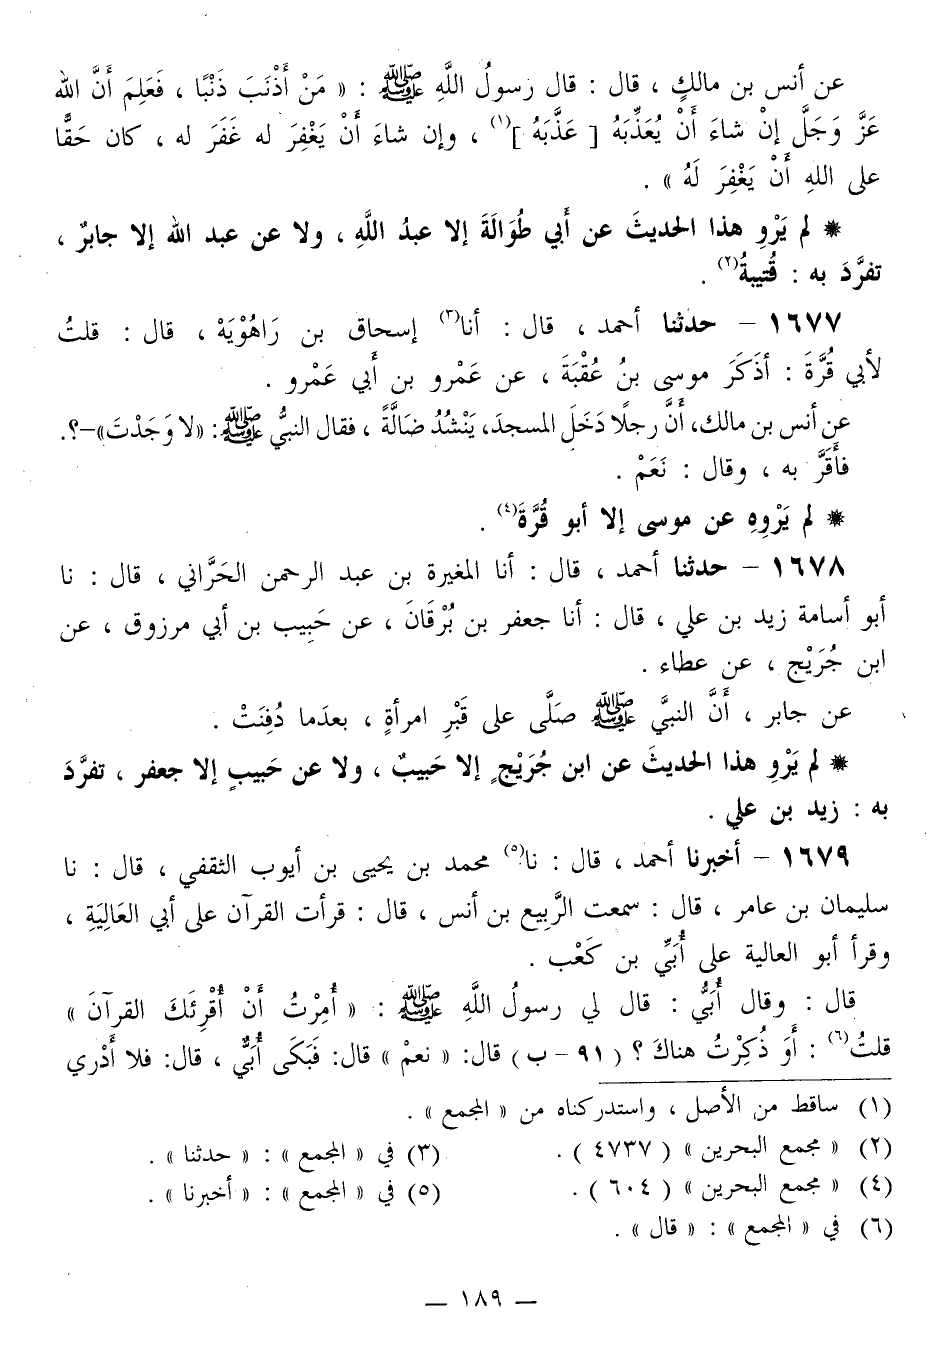 عن أنس بن مالكٍ ، قال : قال رسولُ اللَّهِ ﷺ : « مَنْ أَذْنَبَ ذَنْبًا ، فَعَلِمَ أَنَّ الله
عَزَّ وَجَلَّ إنْ شاءَ أَنْ يُعَذِّبَهُ [ عَذَّبَهُ ](١) ، وإن شاءَ أَنْ يَغْفِرَ له غَفَرَ له ، كان حَقًّا
على اللهِ أَنْ يَغْفِرَ لَهُ » .
* لم يَرْوِ هذا الحديثَ عن أَبي طُوَالَةَ إلا عبدُ اللَّهِ ، ولا عن عبد الله إلا جابرٌ ،
تفرَّدَ به : قُتيبةُ(٢) .
١٦٧٧ – حدثنا أحمد ، قال : أنا(٣) إسحاق بن رَاهُوْيَهْ ، قال : قلتُ
لأبي قُرَّةَ : أذَكَرَ موسى بنُ عُقْبَةَ ، عن عَمْرو بن أَبي عَمْرو .
عن أنس بن مالك، أَنَّ رجلًا دَخَلَ المسجدَ، يَنْشُدُ ضَالَّةً ، فقال النبيُّ ﷺ: «لا وَجَدْتَ»–؟.
فأَقَرَّ به ، وقال : نَعَمْ .
* لم يَرْوِهِ عن موسى إلا أبو قُرَّةَ(٤) .
١٦٧٨ – حدثنا أحمد ، قال : أنا المغيرة بن عبد الرحمن الحَرَّاني ، قال : نا
أبو أسامة زيد بن علي ، قال : أنا جعفر بن بُرْقَانَ ، عن حَبِيب بن أبي مرزوق ، عن
ابن جُرَيْج ، عن عطاء .
عن جابر ، أَنَّ النبيَّ ﷺ صَلَّى على قَبْرِ امرأةٍ ، بعدَما دُفِنَتْ .
* لم يَرْوِ هذا الحديثَ عن ابن جُرَيْجٍ إلا حَبيبٌ ، ولا عن حَبيبٍ إلا جعفر ، تفرَّدَ
به : زيد بن علي .
١٦٧٩ – أخبرنا أحمد ، قال : نا(٥) محمد بن يحيى بن أيوب الثقفي ، قال : نا
سليمان بن عامر ، قال : سمعت الرَّبِيع بن أنس ، قال : قرأت القرآن على أبي العَالِيَةِ ،
وقرأ أبو العالية على أُبَيِّ بن كَعْب .
قال : وقال أُبَيُّ : قال لي رسولُ اللَّهِ ﷺ : « أُمِرْتُ أَنْ أُقْرِئَكَ القرآنَ »
قلتُ(٦) : أَوَ ذُكِرْتُ هناكَ ؟ ( ٩١ – ب ) قال: « نعمْ » قال: فَبَكَى أُبَيٌّ ، قال: فلا أَدْرِي
(١) ساقط من الأصل ، واستدركناه من « المجمع » .
(٢) « مجمع البحرين » ( ٤٧٣٧ ) .
(٣) في « المجمع » : « حدثنا » .
(٤) « مجمع البحرين » ( ٦٠٤ ) .
(٥) في « المجمع » : « أخبرنا » .
(٦) في « المجمع » : « قال » .
– ١٨٩ –